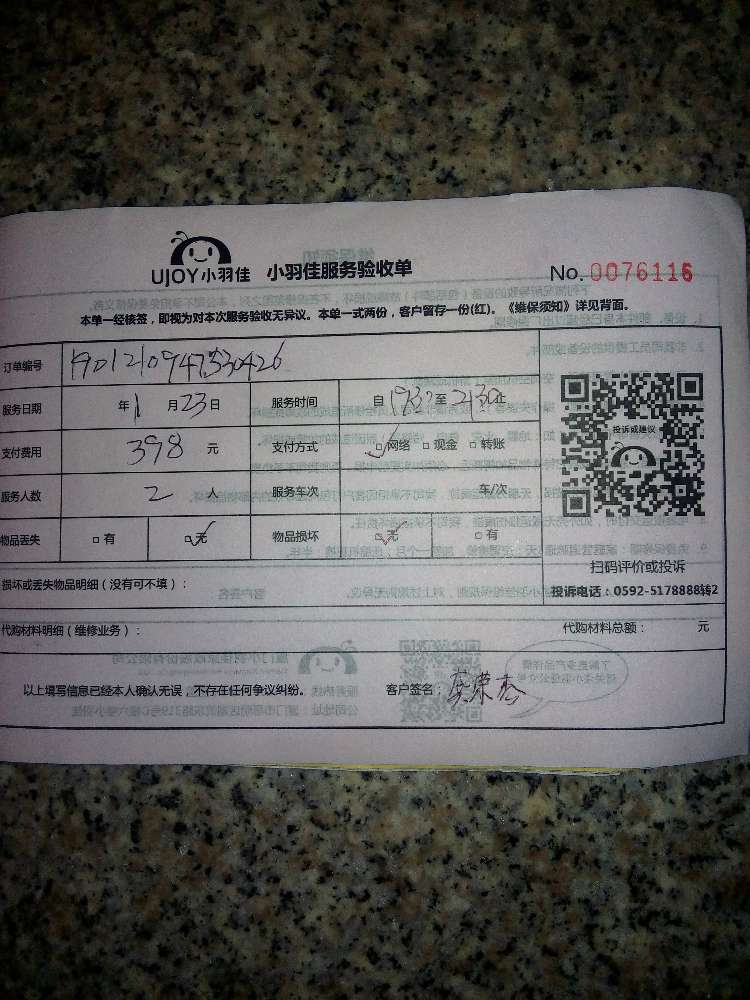 UJOY小羽佳 小羽佳服务验收单 No. 0076116
本单一经核签，即视为对本次服务验收无异议。本单一式两份，客户留存一份(红)。《维保须知》详见背面。
订单编号 1901210947530426
服务日期 年 1 月 23 日 服务时间 自 1930 至 2130 止
支付费用 398 元 支付方式 ☑网络 □现金 □转账
服务人数 2 人 服务车次 车/次
物品丢失 □有 ☑无 物品损坏 ☑无 □有
投诉或建议
扫码评价或投诉
投诉电话：0592-5178888转2
损坏或丢失物品明细（没有可不填）：
代购材料明细（维修业务）： 代购材料总额： 元
以上填写信息已经本人确认无误，不存在任何争议纠纷。 客户签名：